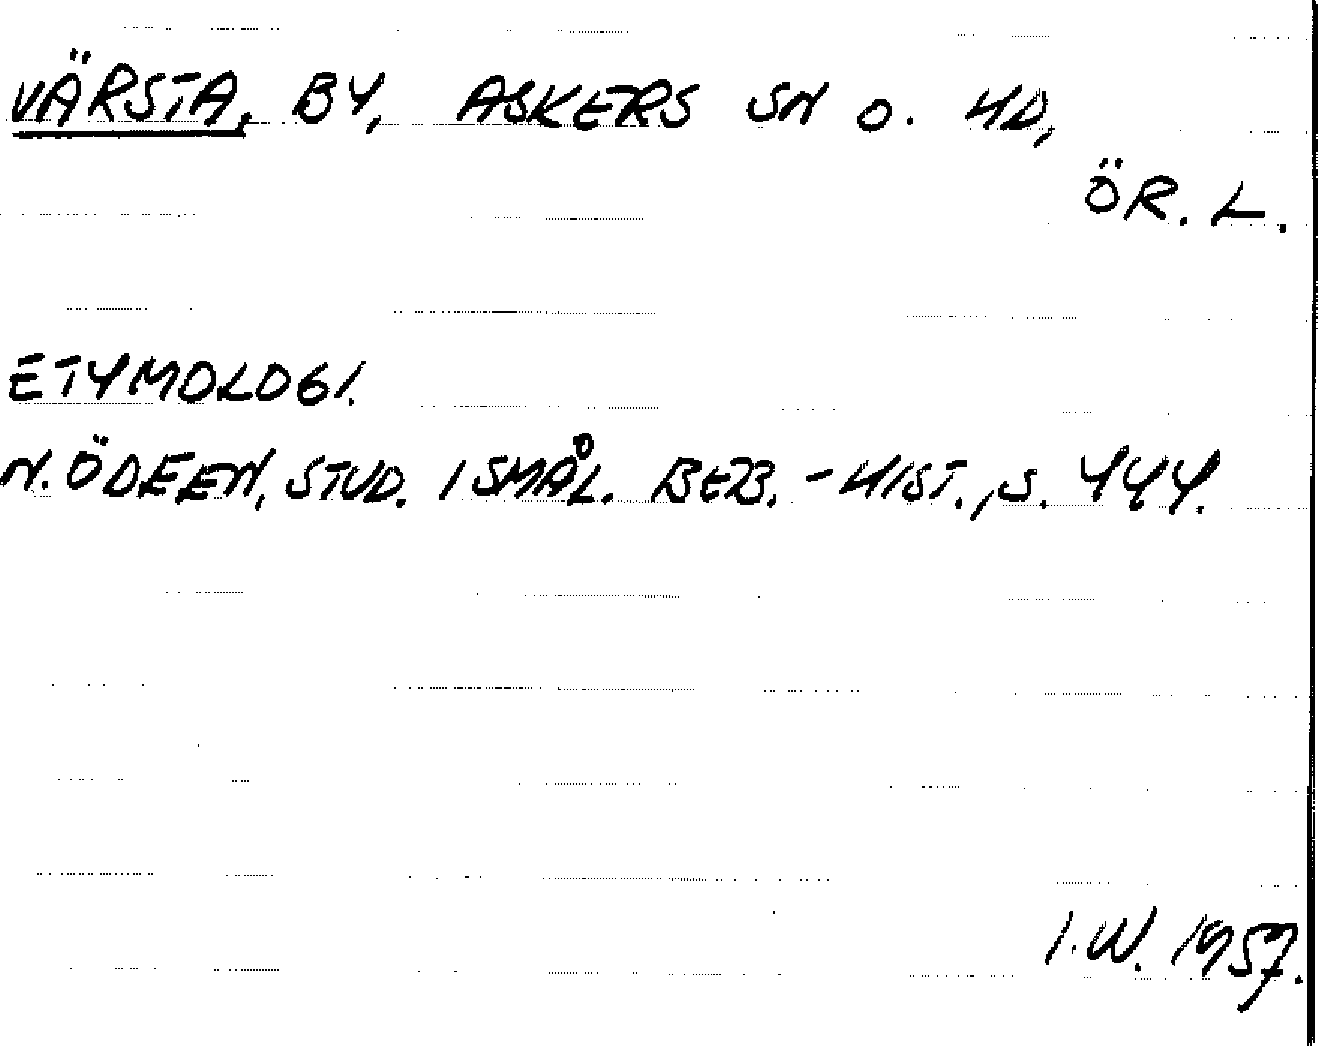 VÄRSTA, BY, ASKERS SN O. HD,
ÖR. L.
ETYMOLOGI.
N. ÖDEEN, STUD. I SMÅL. BEB.-HIST., S. 444.
I.W. 1957.